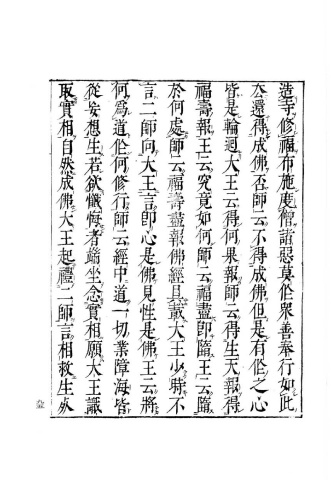 造寺修福布施度僧諸惡莫作眾善奉行如此
去還得成佛否師云不得成佛但是有作之心
皆是輪迴大王云得何果報師云得生天報得
福壽報王云究竟如何師云福盡即墮王云墮
於何處師云福壽盡報佛經具載大王少時不
言二師向大王言即心是佛見性是佛王云將
何爲道作何修行師云經中道一切業障海皆
從妄想生若欲懺悔者端坐念實相願大王識
取實相自然成佛大王起禮二師言相救生死